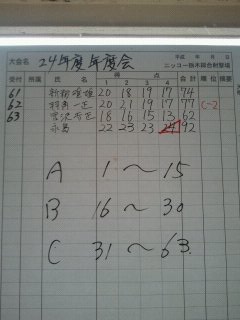 平成 年 月 日
大会名 24年度年度会 ニッコー栃木綜合射撃場
受付 所属 氏名 得点 1 2 3 4 合計 順位 摘要
61 20 18 19 17 74
62 20 21 19 17 77 C-2
63 18 16 15 13 62
永島 22 23 23 24 92
A 1～15
B 16～30
C 31～63